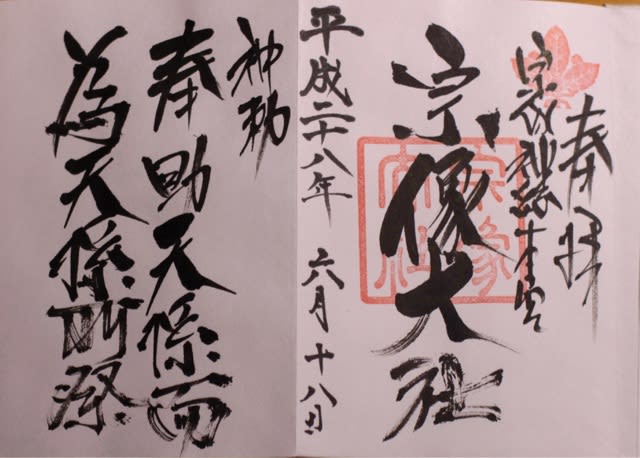 奉拝
宗像神総本宮
宗像大社
宗像大社
平成二十八年 六月 十八日
神勅
奉助天孫而
為天孫所祭